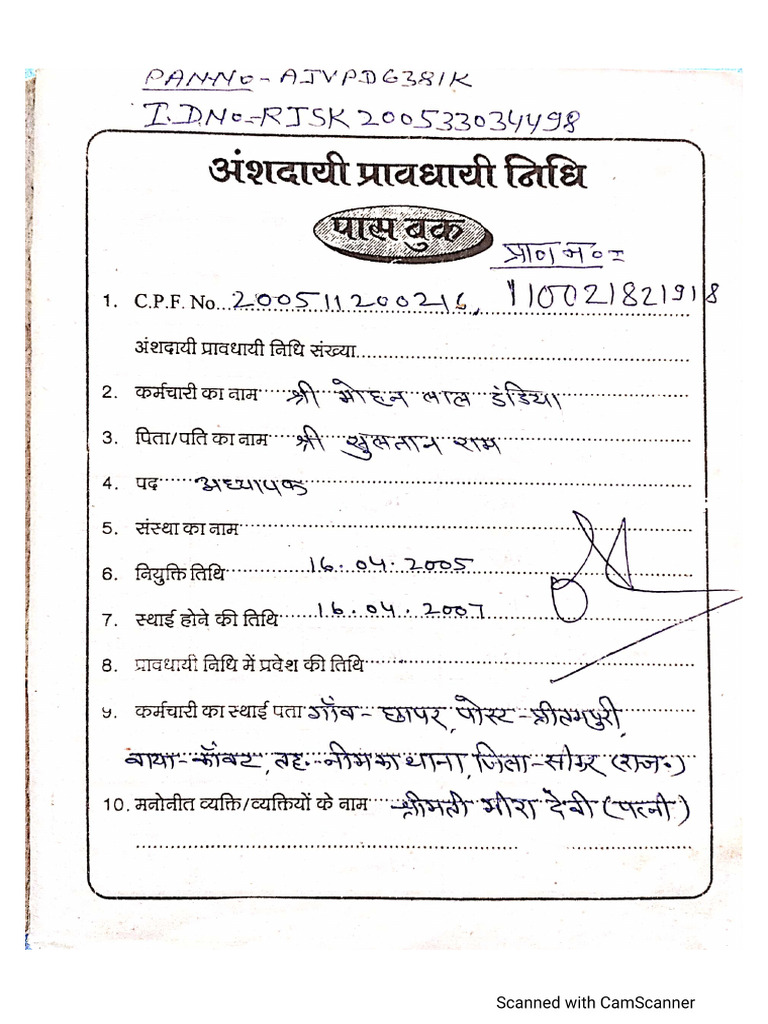 PAN-No - AJVPD6381K
I.D.No - RJSK200533034498
अंशदायी प्रावधायी निधि
पास बुक
प्रान न० =
1. C.P.F. No. 200511200216, 110021821918
अंशदायी प्रावधायी निधि संख्या
2. कर्मचारी का नाम श्री मोहन लाल डंडिया
3. पिता/पति का नाम श्री सुलतान राम
4. पद अध्यापक
5. संस्था का नाम
6. नियुक्ति तिथि 16.04.2005
7. स्थाई होने की तिथि 16.04.2007
8. प्रावधायी निधि में प्रवेश की तिथि
9. कर्मचारी का स्थाई पता गाँव - छापर, पोस्ट - प्रीतमपुरी,
वाया - काँवट, तह. - नीमकाथाना, जिला - सीकर (राज.)
10. मनोनीत व्यक्ति/व्यक्तियों के नाम श्रीमती मीरा देवी (पत्नी)
Scanned with CamScanner